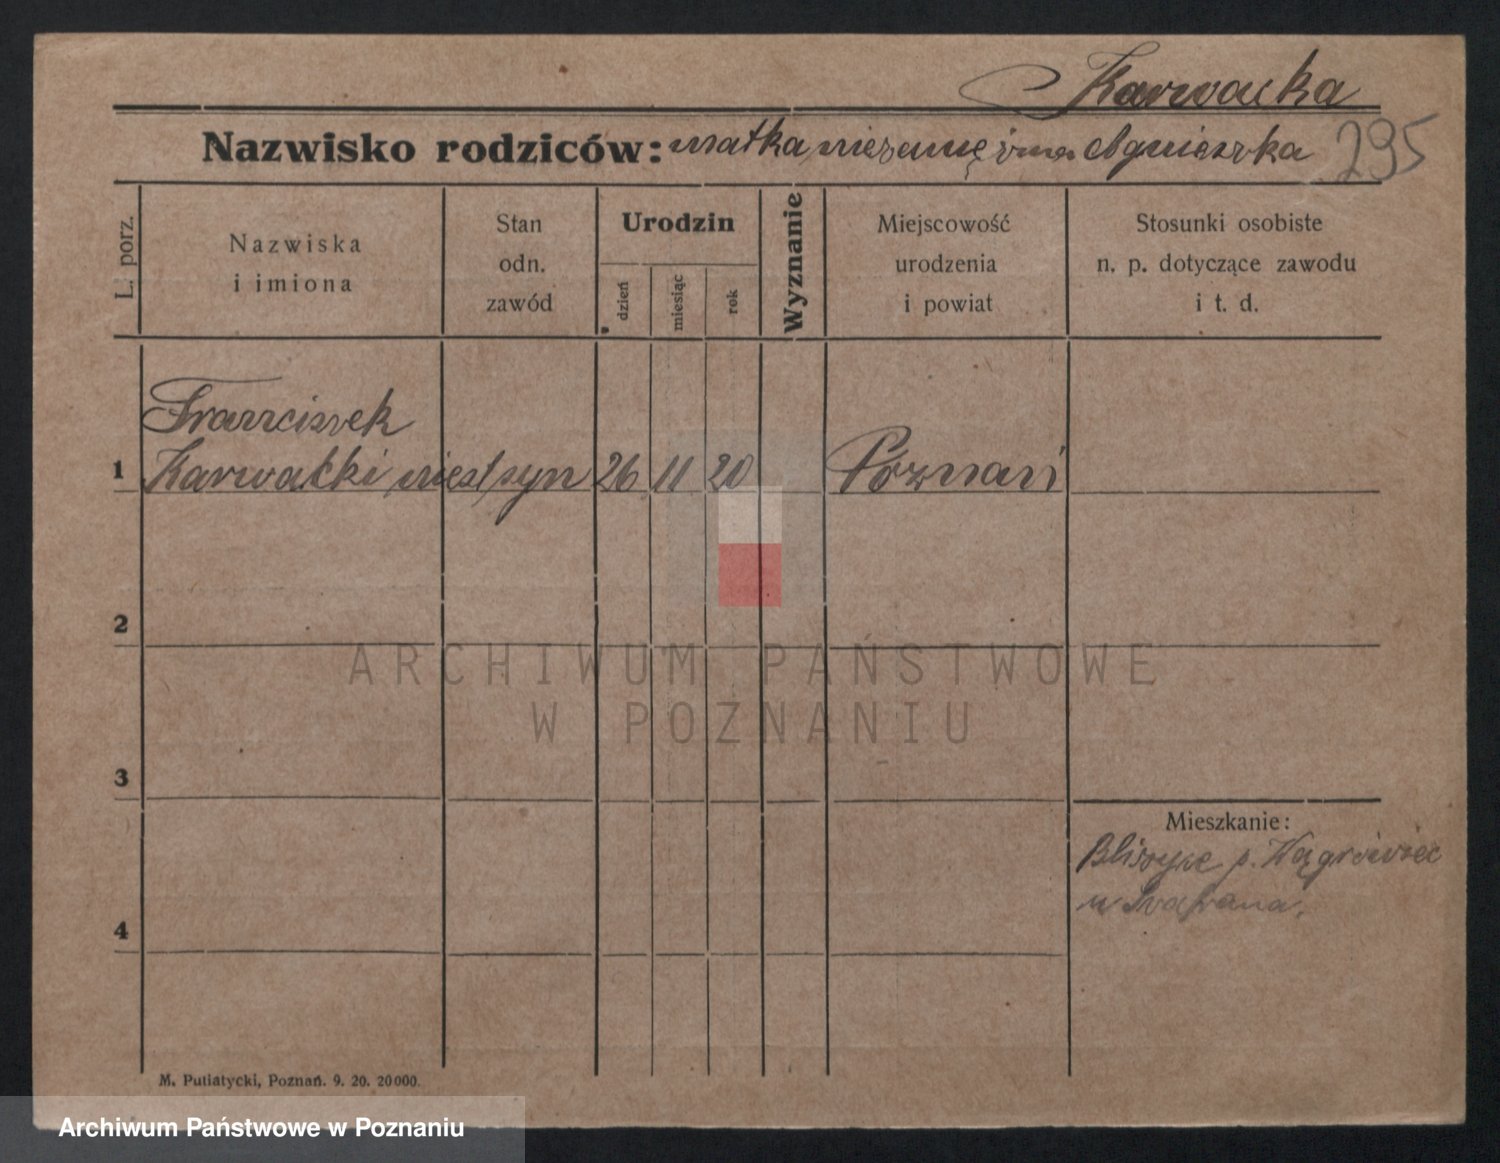 Karwacka
Nazwisko rodziców: matka niezamężna Agnieszka 295
L. porz.
Nazwiska
i imiona
Stan
odn.
zawód
Urodzin
dzień
miesiąc
rok
Wyznanie
Miejscowość
urodzenia
i powiat
Stosunki osobiste
n. p. dotyczące zawodu
i t. d.
Franciszek
1 Karwacki syn 26 11 20 Poznań
2
3
4
Mieszkanie:
p. Wągrówiec
u
M. Putiatycki, Poznań. 9. 20. 20000.
ARCHIWUM PAŃSTWOWE
W POZNANIU
Archiwum Państwowe w Poznaniu